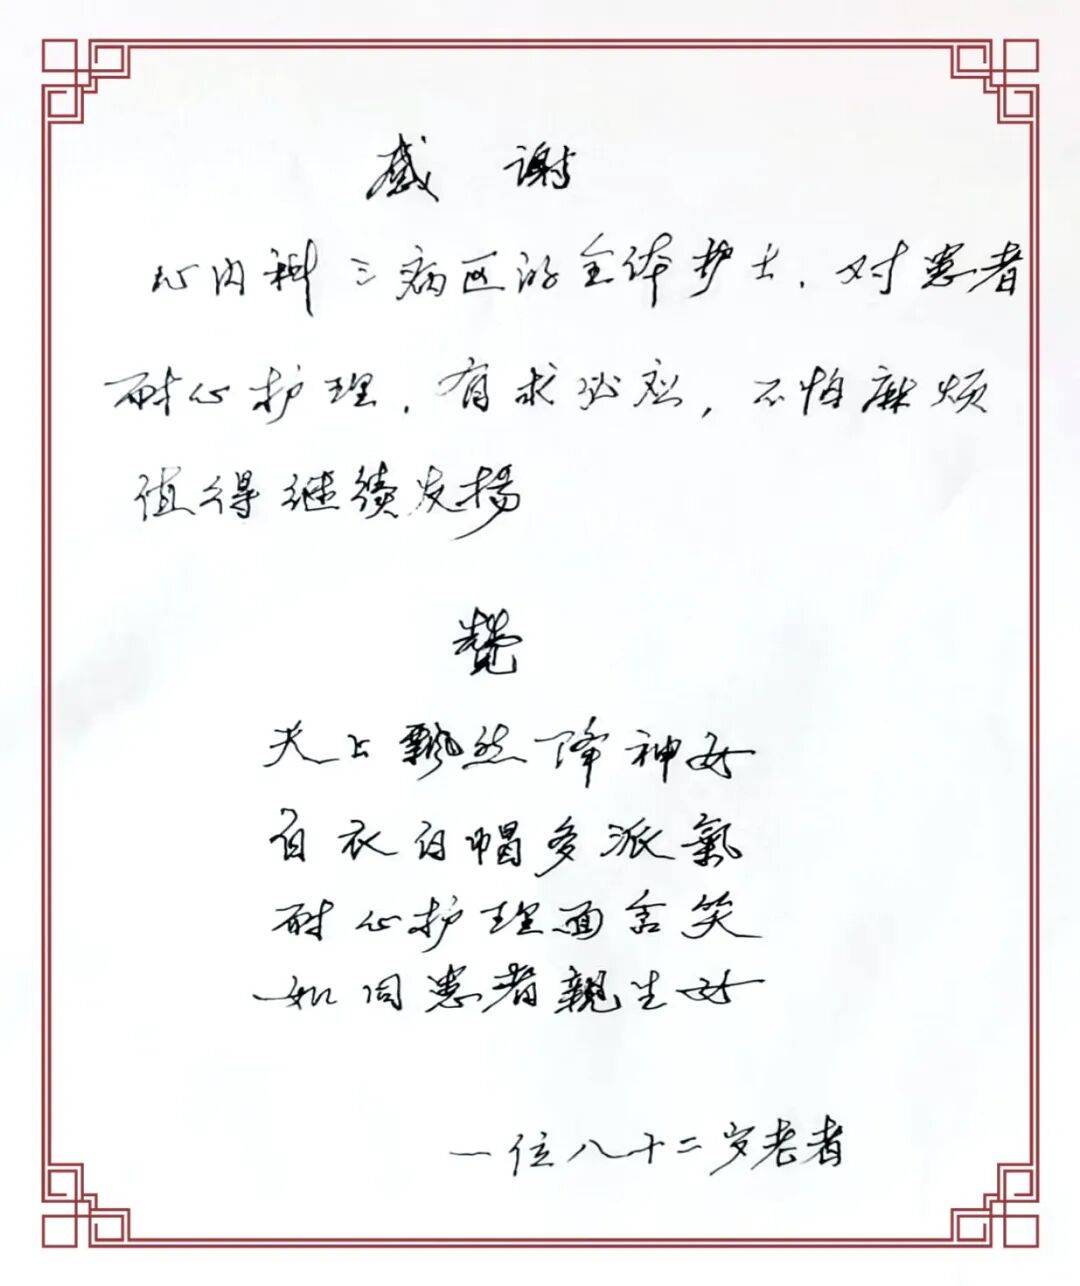 感 谢
心内科三病区的全体护士，对患者
耐心护理，有求必应，不怕麻烦
值得继续发扬
赞
天上飘然降神女
白衣白帽多派氣
耐心护理面含笑
如同患者親生女
一位八十二岁老者